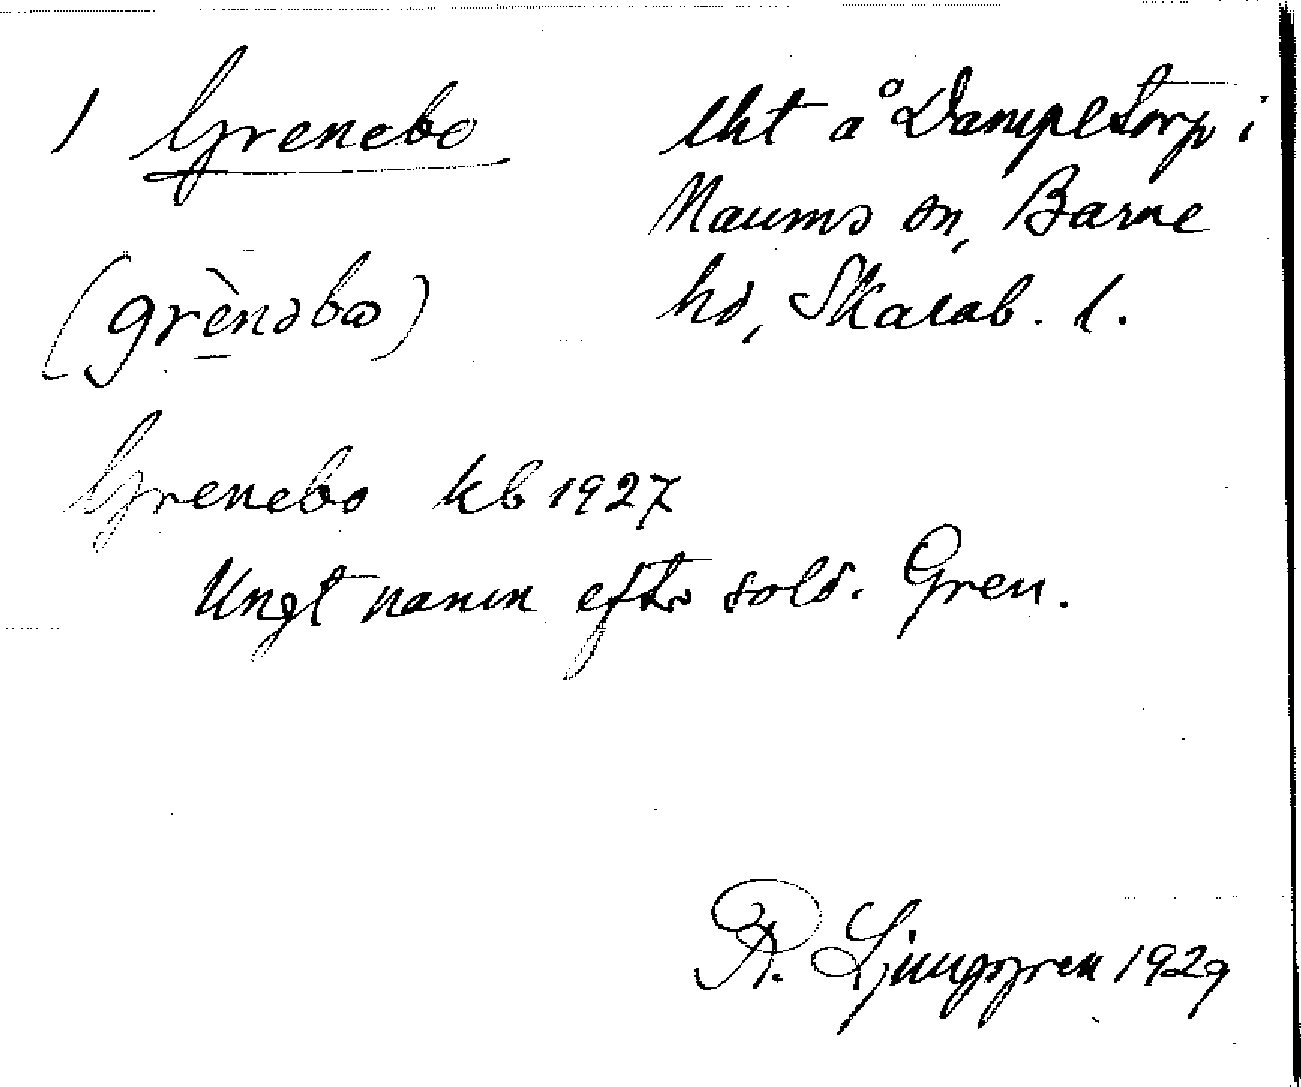 1 Grenebo
lht å Dampetorp i
Naums sn, Barne
hd, Skarab. l.
(grènəbω)
Grenebo kb 1927
Ungt namn efter sold. Gren.
R. Ljunggren 1929